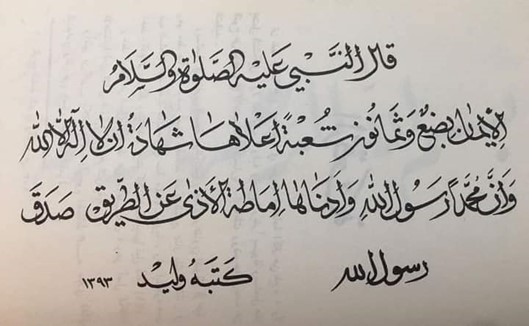 قال النبي عليه الصلوة والسلام
الإيمان بضع وثمانون شعبة أعلاها شهادة ان لا اله الا الله
وان محمدا رسول الله وأدناها إماطة الأذى عن الطريق صدق
رسول الله كتبه وليد ١٣٩٣